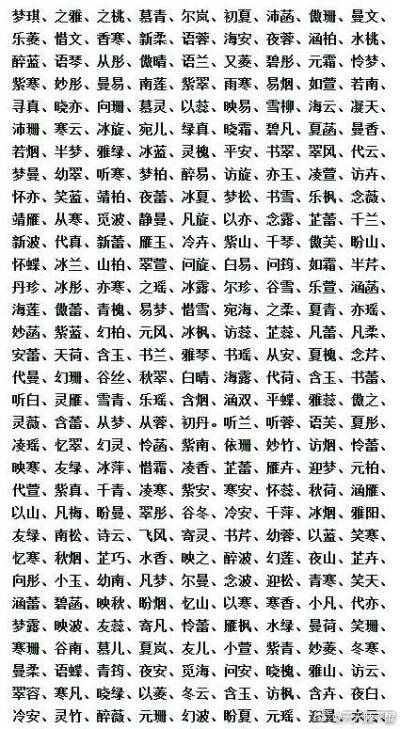 梦琪、之雅、之桃、慕青、尔岚、初夏、沛菡、傲珊、曼文、
乐菱、惜文、香寒、新柔、语蓉、海安、夜蓉、涵柏、水桃、
醉蓝、语琴、从彤、傲晴、语兰、又菱、碧彤、元霜、怜梦、
紫寒、妙彤、曼易、南莲、紫翠、雨寒、易烟、如萱、若南、
寻真、晓亦、向珊、慕灵、以蕊、映易、雪柳、海云、凝天、
沛珊、寒云、冰旋、宛儿、绿真、晓霜、碧凡、夏菡、曼香、
若烟、半梦、雅绿、冰蓝、灵槐、平安、书翠、翠风、代云、
梦曼、幼翠、听寒、梦柏、醉易、访旋、亦玉、凌萱、访卉、
怀亦、笑蓝、靖柏、夜蕾、冰夏、梦松、书雪、乐枫、念薇、
靖雁、从寒、觅波、静曼、凡旋、以亦、念露、芷蕾、千兰、
新波、代真、新蕾、雁玉、冷卉、紫山、千琴、傲芙、盼山、
怀蝶、冰兰、山柏、翠萱、问旋、白易、问筠、如霜、半芹、
丹珍、冰彤、亦寒、之瑶、冰露、尔珍、谷雪、乐萱、涵菡、
海莲、傲蕾、青槐、易梦、惜雪、宛海、之柔、夏青、亦瑶、
妙菡、紫蓝、幻柏、元风、冰枫、访蕊、芷蕊、凡蕾、凡柔、
安蕾、天荷、含玉、书兰、雅琴、书瑶、从安、夏槐、念芹、
代曼、幻珊、谷丝、秋翠、白晴、海露、代荷、含玉、书蕾、
听白、灵雁、雪青、乐瑶、含烟、涵双、平蝶、雅蕊、傲之、
灵薇、含蕾、从梦、从蓉、初丹。听兰、听蓉、语芙、夏彤、
凌瑶、忆翠、幻灵、怜菡、紫南、依珊、妙竹、访烟、怜蕾、
映寒、友绿、冰萍、惜霜、凌香、芷蕾、雁卉、迎梦、元柏、
代萱、紫真、千青、凌寒、紫安、寒安、怀蕊、秋荷、涵雁、
以山、凡梅、盼曼、翠彤、谷冬、冷安、千萍、冰烟、雅阳、
友绿、南松、诗云、飞风、寄灵、书芹、幼蓉、以蓝、笑寒、
忆寒、秋烟、芷巧、水香、映之、醉波、幻莲、夜山、芷卉、
向彤、小玉、幼南、凡梦、尔曼、念波、迎松、青寒、笑天、
涵蕾、碧菡、映秋、盼烟、忆山、以寒、寒香、小凡、代亦、
梦露、映波、友蕊、寄凡、怜蕾、雁枫、水绿、曼荷、笑珊、
寒珊、谷南、慕儿、夏岚、友儿、小萱、紫青、妙菱、冬寒、
曼柔、语蝶、青筠、夜安、觅海、问安、晓槐、雅山、访云、
翠容、寒凡、晓绿、以菱、冬云、含玉、访枫、含卉、夜白、
冷安、灵竹、醉薇、元珊、幻波、盼夏、元瑶、